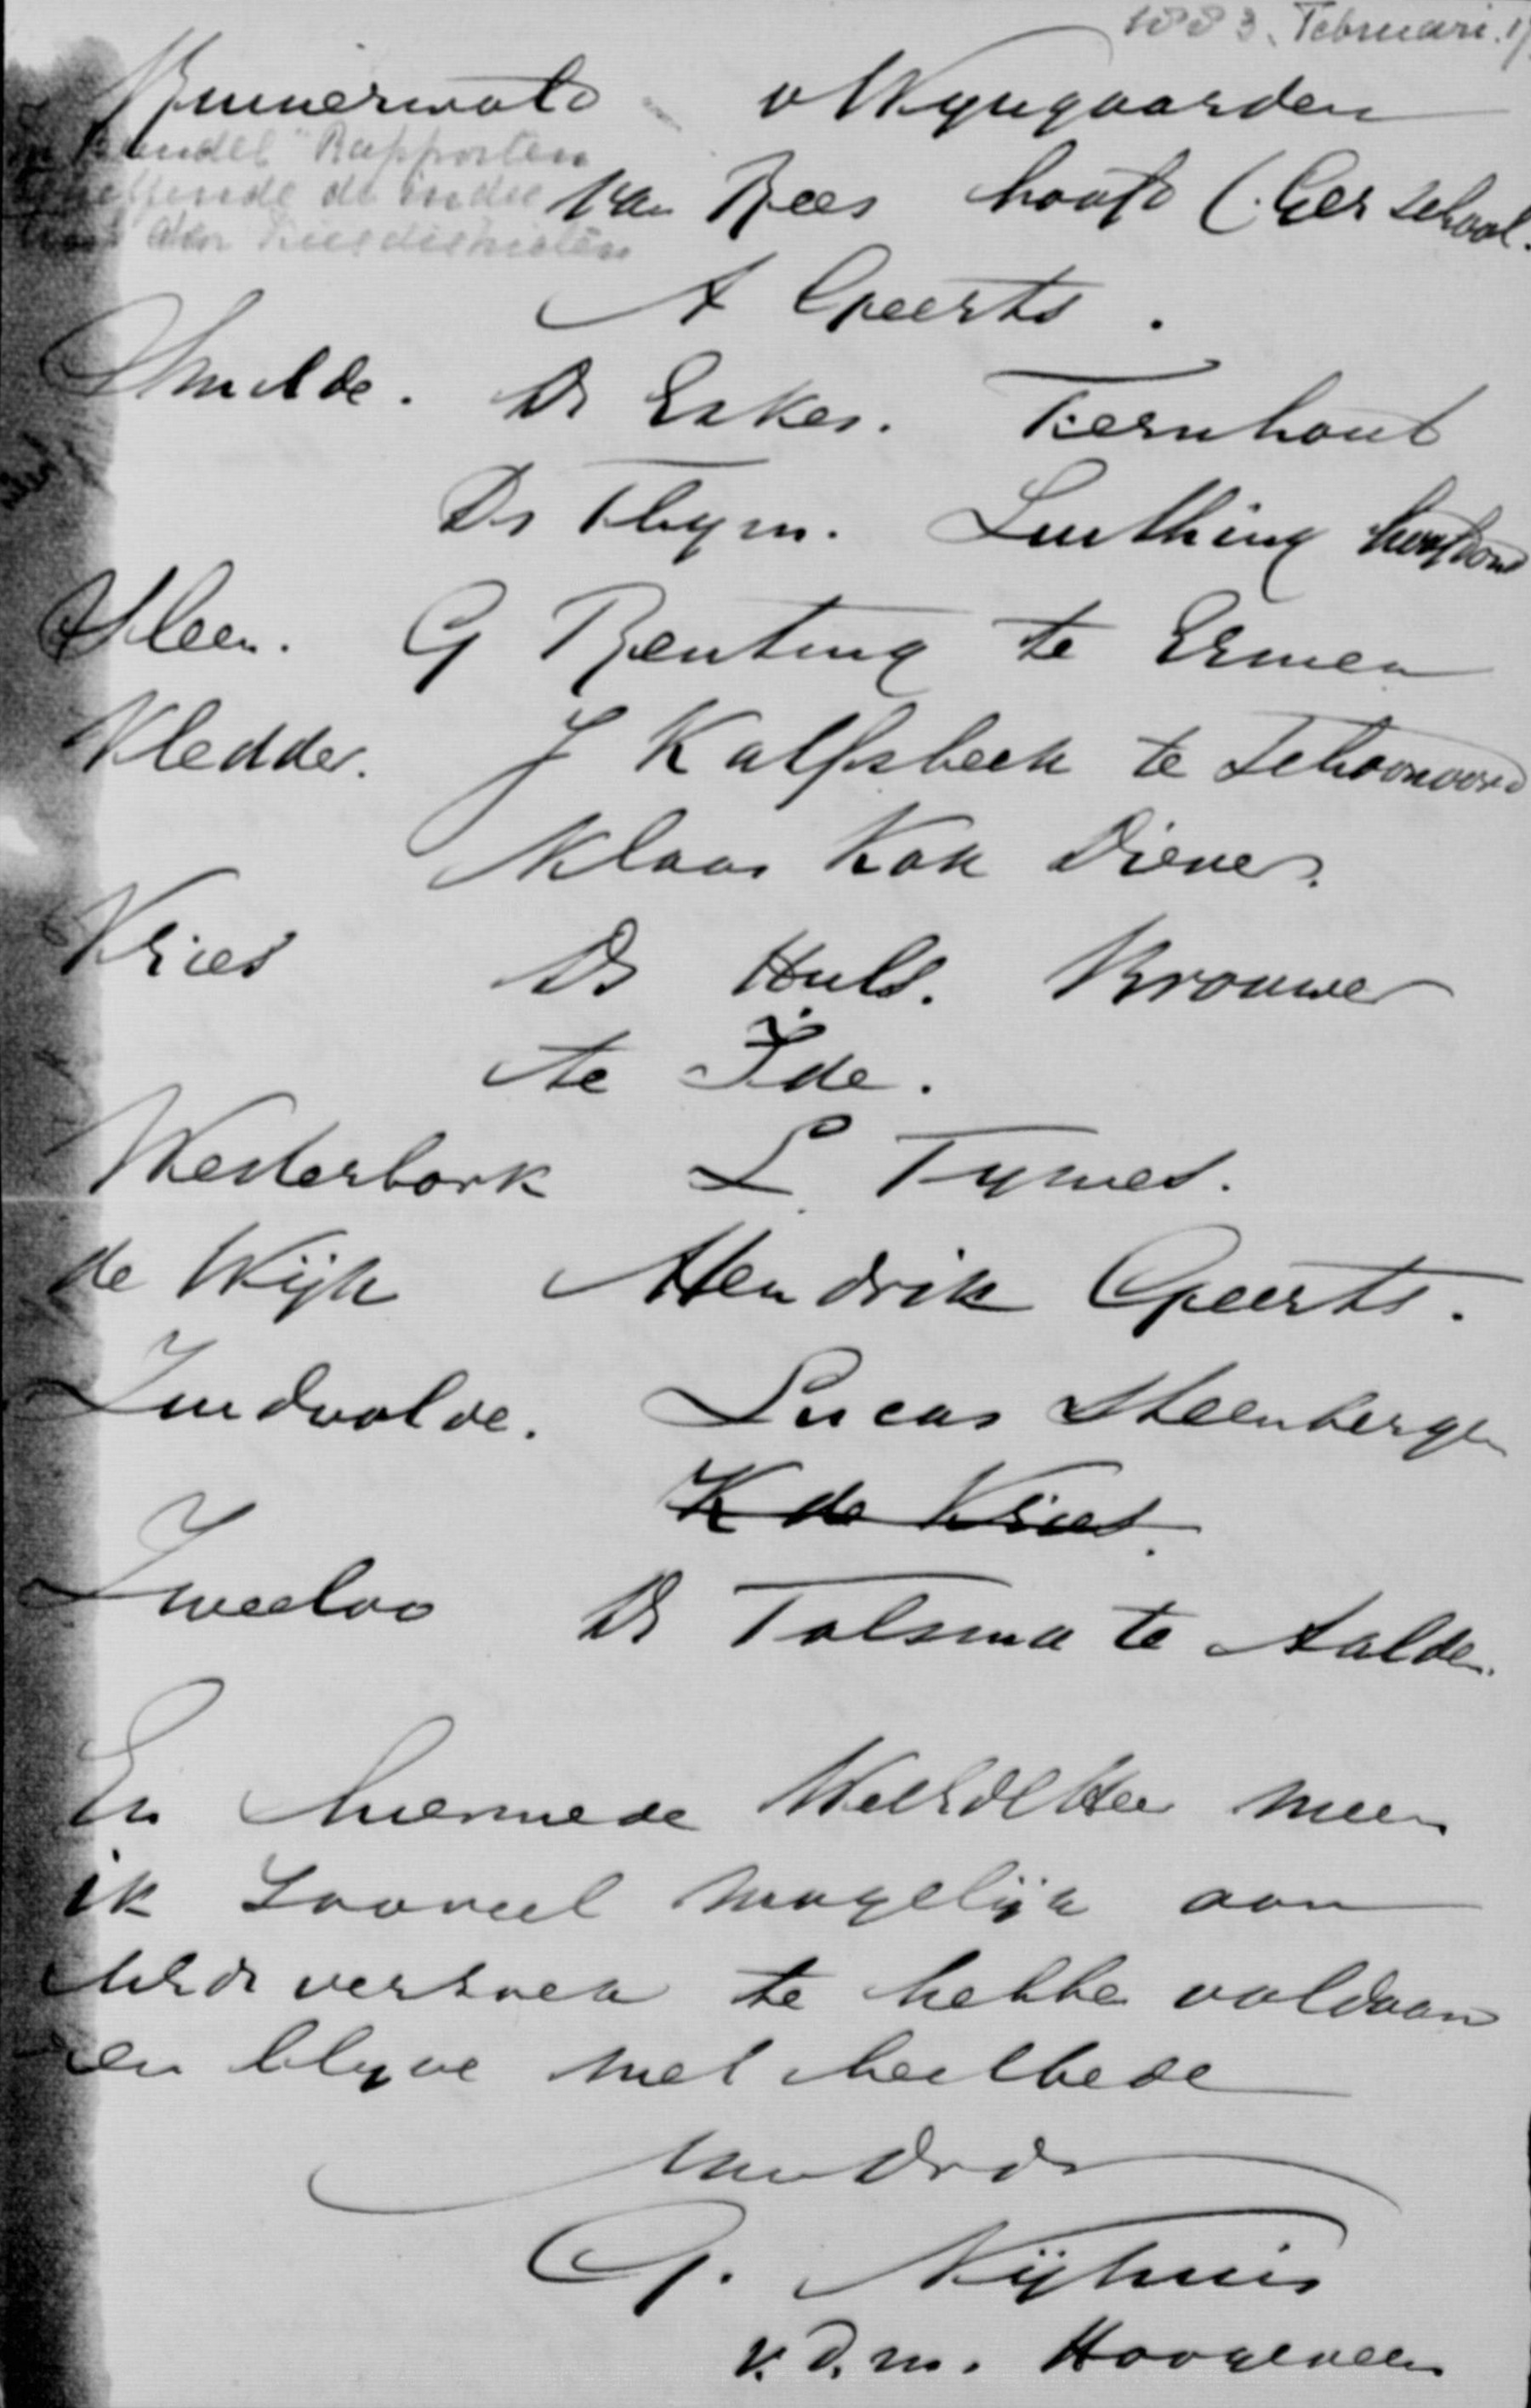 1883. Februari.
Ruinerwold v Wyngaarden
Bundel "Rapporten
van Rees hoofd Cher school.
de indee
der Kiesdistricten
A Geerts.
Smilde. Ds Eskes. Fernhout
Ds Thym. Luthing
Sleen. G Benting te Ermen
Vledder. J Kalfsbeek te Schoonoord
Klaas Kok Diever.
Vries Ds Huls. Brouwer
te IJde.
Westerbork L Tymes.
de Wijk Hendrik Geerts.
Zuidwolde. Lucas Steenbergen
K de Vries.
Zweeloo Ds Tolsma te Aalden.
En hiermede WeldHeer meen
ik zooveel mogelijk aan
verzoek te hebbe voldaan
en blyve met heilbede
Uw Ddr
G. Nijhuis
V. D. m. Hoogeveen